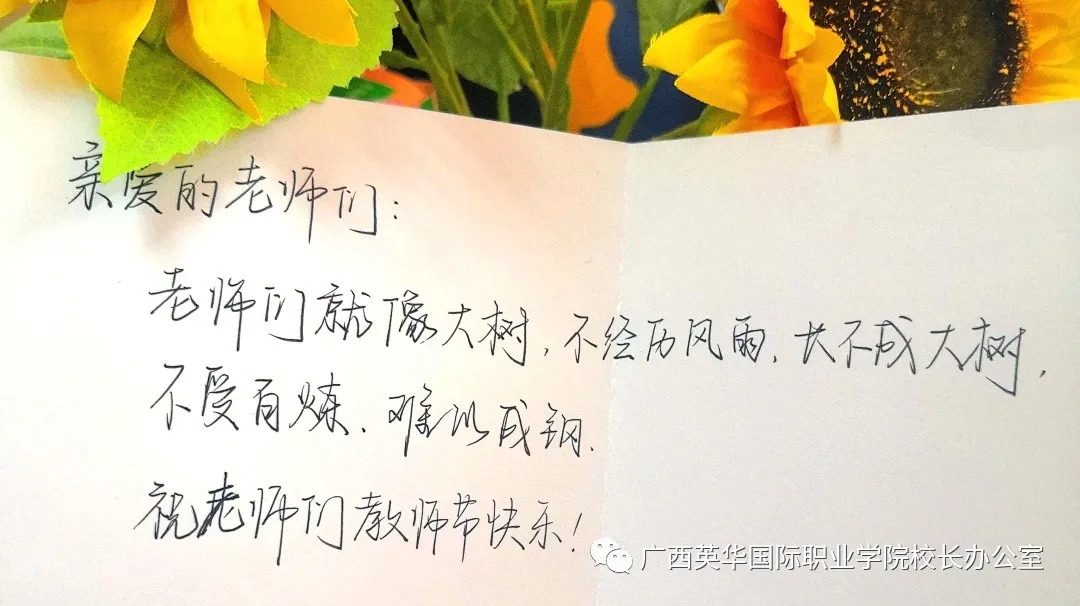 亲爱的老师们:
老师们就像大树,不经历风雨,长不成大树,
不受百炼,难以成钢.
祝老师们教师节快乐!
广西英华国际职业学院校长办公室